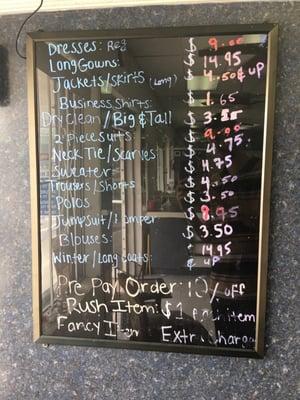 Dresses: Reg $ 9.00
Long Gowns: $ 14.95
Jackets/skirts (Long) $ 4.50 & up
Business Shirts: $ 1.65
Dry Clean / Big & Tall $ 3.
2 piece suits $ 9.
Neck Tie/Scarves $ 4.75
Sweater $ 4.75
Trousers/Shorts $ 4.50
Polos $ 3.50
Jumpsuit/ $ 8.95
Blouses: $ 3.50
Winter/Long coats: 14.95
up
Pre Pay Order: 10% off
Rush Item: $1 item
Fancy Item Extra charge